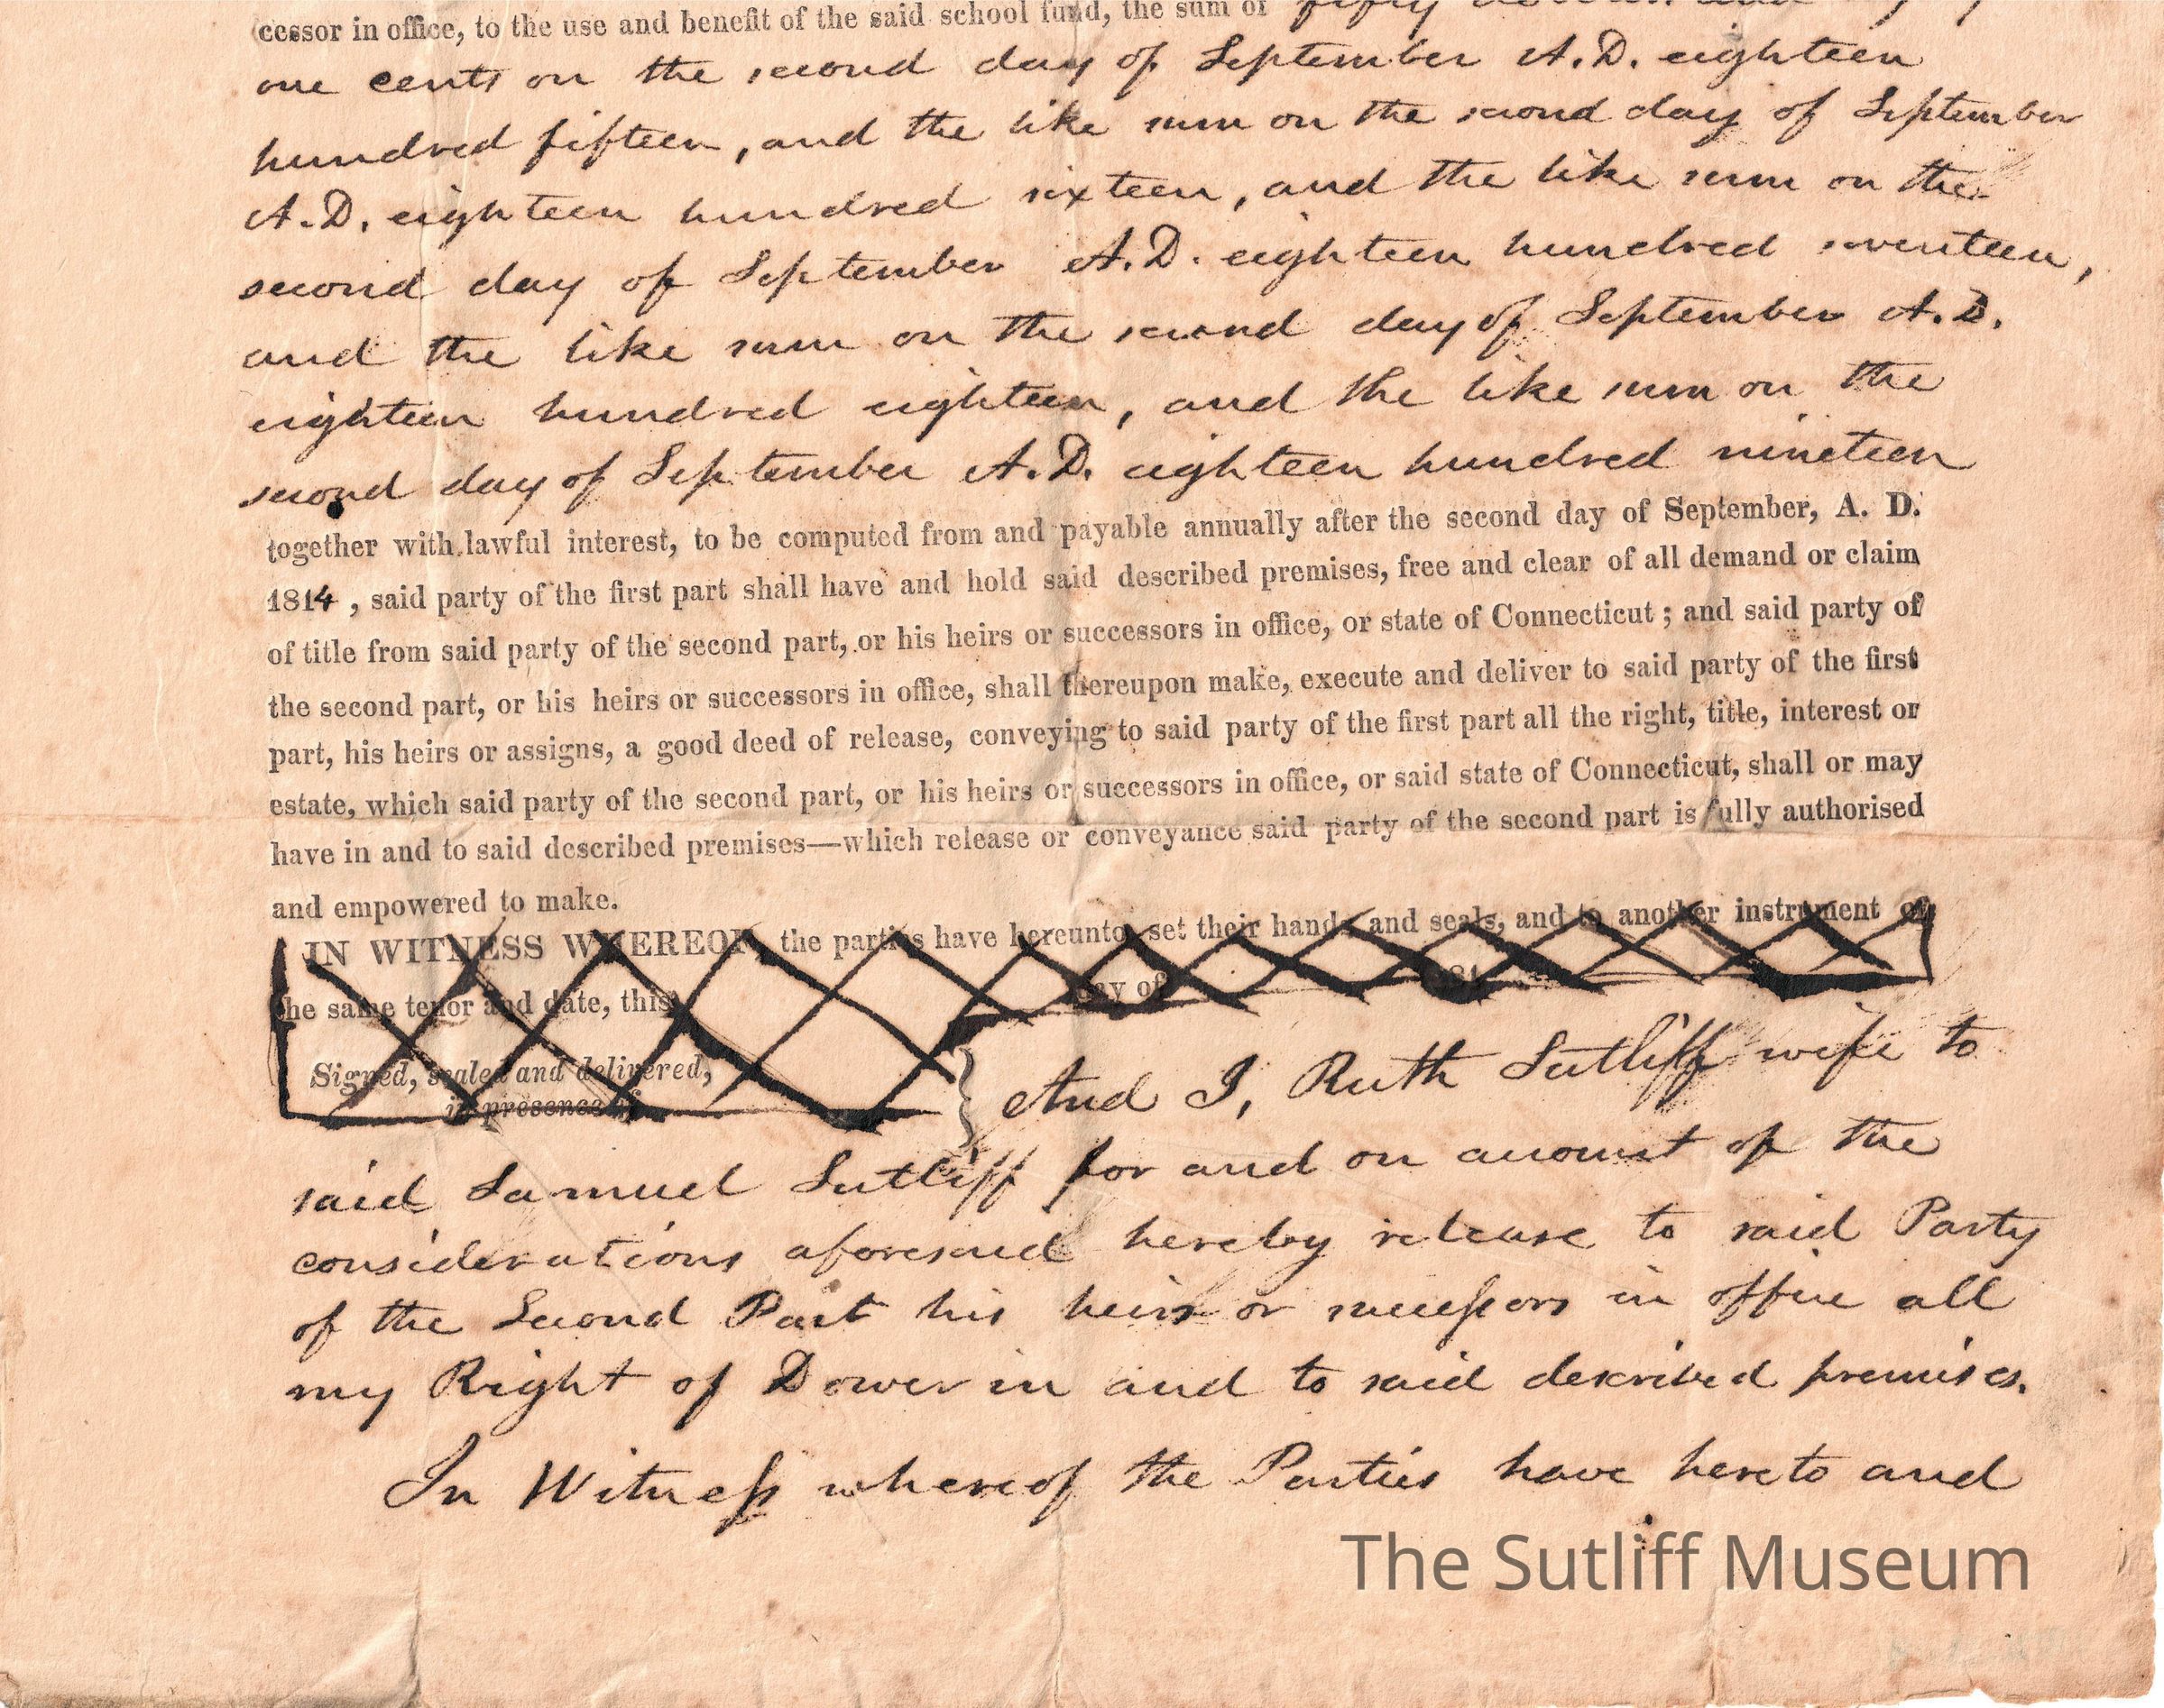 cessor in office, to the use and benefit of the said school fund, the sum of fifty
one cents on the second day of September A.D. eighteen
hundred fifteen, and the like sum on the second day of September
A.D. eighteen hundred sixteen, and the like sum on the
second day of September A.D. eighteen hundred seventeen,
and the like sum on the second day of September A.D.
eighteen hundred eighteen, and the like sum on the
second day of September A.D. eighteen hundred nineteen
together with lawful interest, to be computed from and payable annually after the second day of September, A. D.
1814 , said party of the first part shall have and hold said described premises, free and clear of all demand or claim
of title from said party of the second part, or his heirs or successors in office, or state of Connecticut ; and said party of
the second part, or his heirs or successors in office, shall thereupon make, execute and deliver to said party of the first
part, his heirs or assigns, a good deed of release, conveying to said party of the first part all the right, title, interest or
estate, which said party of the second part, or his heirs or successors in office, or said state of Connecticut, shall or may
have in and to said described premises—which release or conveyance said party of the second part is fully authorised
and empowered to make.
IN WITNESS WHEREOF, the parties have hereunto set their hands and seals, and to another instrument of
the same tenor and date, this day of 181
Signed, sealed and delivered,
in presence of
And I, Ruth Sutliff wife to
said Samuel Sutliff for and on account of the
considerations aforesaid hereby release to said Party
of the Second Part his heirs or successors in office all
my Right of Dower in and to said described premises.
In Witness whereof the Parties have hereto and
The Sutliff Museum